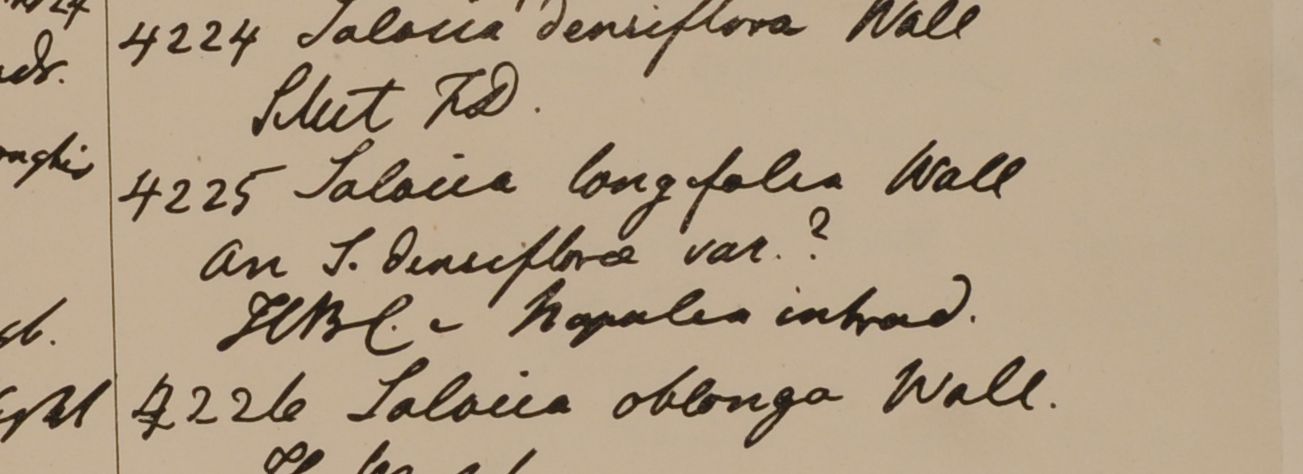 4224 Salacia densiflora Wall
Silhet FD.
4225 Salacia longifolia Wall
an S. densiflorae var.?
HBC. e Napalea introd.
4226 Salacia oblonga Wall.